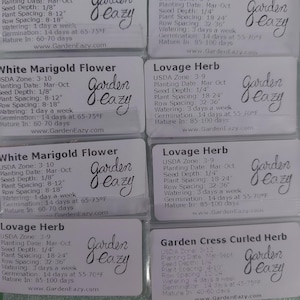 Planting Date: Mar-Oct
Seed Depth: 1/8"
Plant Spacing: 8-12"
Row Spacing: 8-18"
Watering: 3 days a week
Germination: 14 days at 65-75°F
Mature In: 60-70 days
www.GardenEazy.com
Garden Eazy
Planting Date: Mar-Oct
Seed Depth: 1/4"
Plant Spacing: 18-24"
Row Spacing: 32-36"
Watering: 3 days a week
Germination: 14 days at 55-70°F
Mature In: 85-100 days
www.GardenEazy.com
Garden Eazy
White Marigold Flower
USDA Zone: 3-10
Planting Date: Mar-Oct
Seed Depth: 1/8"
Plant Spacing: 8-12"
Row Spacing: 8-18"
Watering: 3 days a week
Germination: 14 days at 65-75°F
Mature In: 60-70 days
www.GardenEazy.com
Garden Eazy
Lovage Herb
USDA Zone: 3-9
Planting Date: Mar-Oct
Seed Depth: 1/4"
Plant Spacing: 18-24"
Row Spacing: 32-36"
Watering: 3 days a week
Germination: 14 days at 55-70°F
Mature In: 85-100 days
www.GardenEazy.com
Garden Eazy
White Marigold Flower
USDA Zone: 3-10
Planting Date: Mar-Oct
Seed Depth: 1/8"
Plant Spacing: 8-12"
Row Spacing: 8-18"
Watering: 3 days a week
Germination: 14 days at 65-75°F
Mature In: 60-70 days
Garden Eazy
Lovage Herb
USDA Zone: 3-9
Planting Date: Mar-Oct
Seed Depth: 1/4"
Plant Spacing: 18-24"
Row Spacing: 32-36"
Watering: 3 days a week
Germination: 14 days at 55-70°F
Mature In: 85-100 days
www.GardenEazy.com
Garden Eazy
Lovage Herb
USDA Zone: 3-9
Planting Date: Mar-Oct
Seed Depth: 1/4"
Plant Spacing: 18-24"
Row Spacing: 32-36"
Watering: 3 days a week
Germination: 14 days at 55-70°F
Mature In: 85-100 days
www.GardenEazy.com
Garden Eazy
Garden Cress Curled Herb
www.GardenEazy.com
Garden Eazy